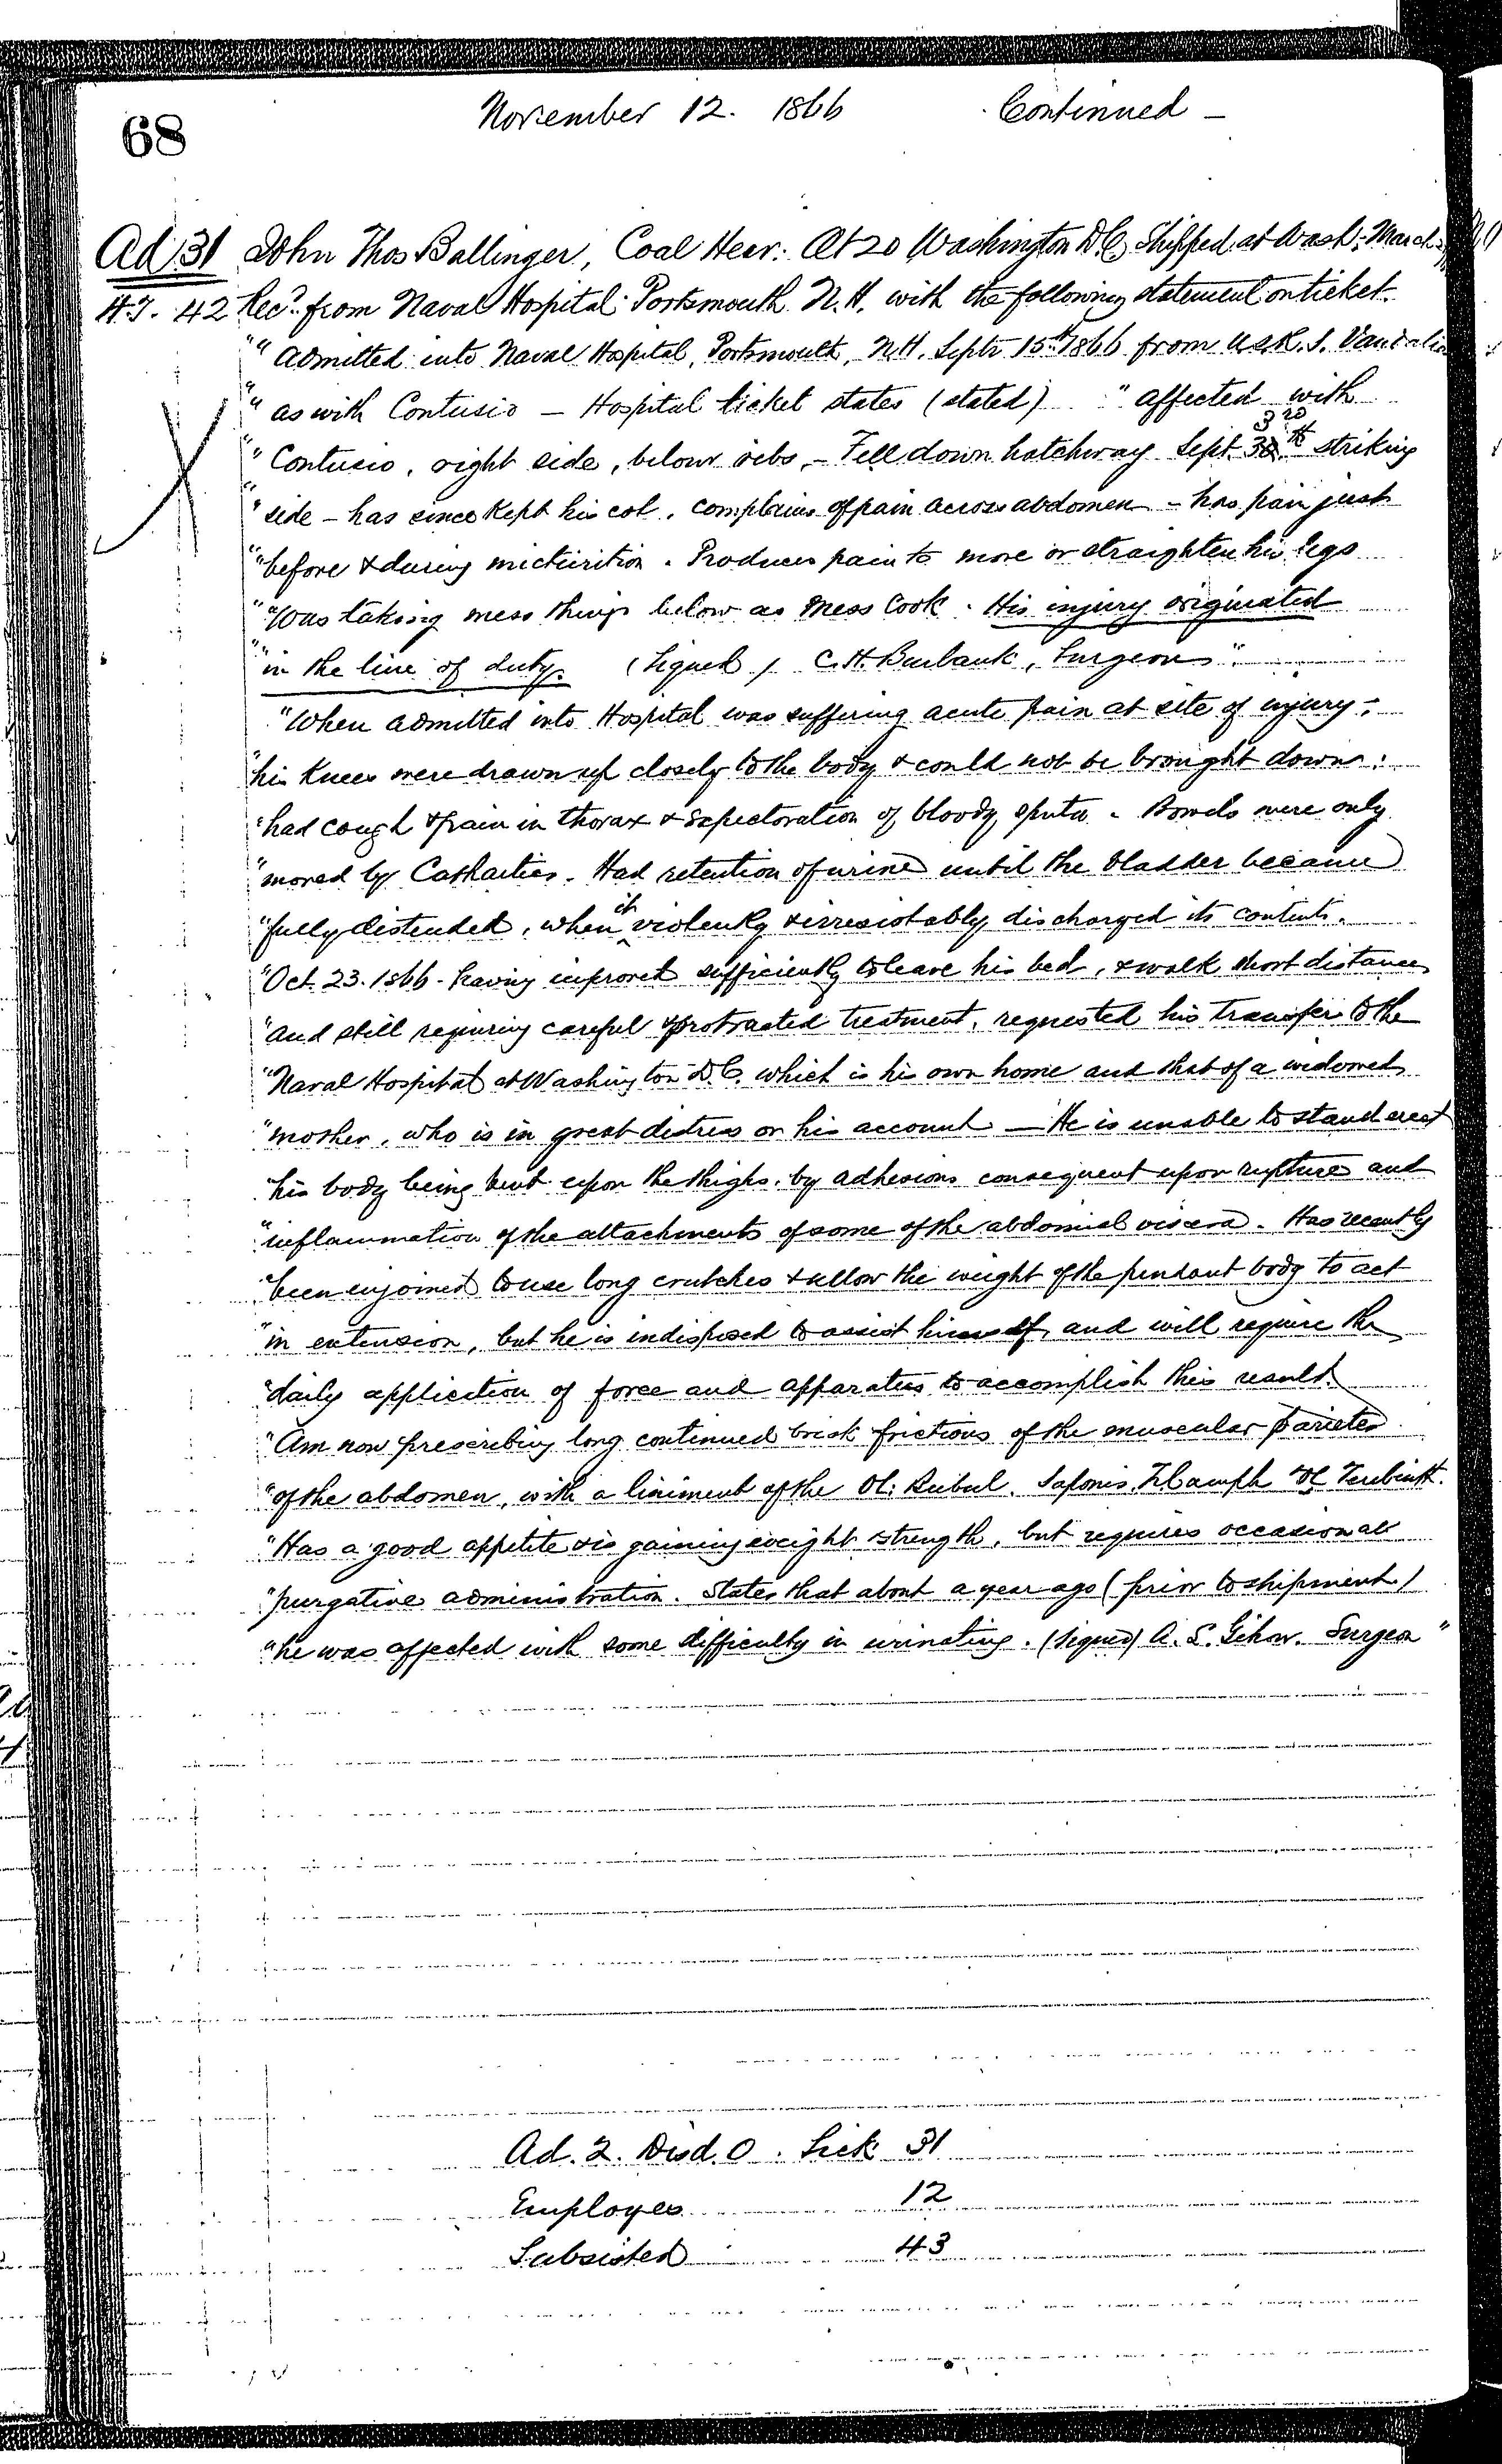 68
November 12. 1866 Continued —
Ad 31 John Thos Ballinger, Coal Heav: Æt 20 Washington D.C. Shipped at Wash: March
H.T. 42 Rec'd from Naval Hospital Portsmouth N.H. with the following statement on ticket.
"" Admitted into Naval Hospital, Portsmouth, N.H. Septr 15th 1866 from U.S.R.S. Vandalia
"" as with Contusio — Hospital ticket states (stated) "affected with
"" Contusio, right side, below ribs, — Fell down hatchway Sept. 3rd striking
"" side – has since kept his cot. complains of pain across abdomen – has pain just
"" before & during micturition. Produces pain to move or straighten his legs
"" Was taking mess things below as Mess Cook. His injury originated
"" in the line of duty. (Signed) C.H. Burbank, Surgeon".
"When admitted into Hospital was suffering acute pain at site of injury;
"his knees were drawn up closely to the body & could not be brought down:
"had cough & pain in thorax & expectoration of bloody sputa. Bowels were only
"moved by Cathartics. Had retention of urine until the bladder became
"fully distended, when it violently & irresistably discharged its contents.
"Oct. 23. 1866. having improved sufficiently to leave his bed, & walk short distances
"and still requiring careful & protracted treatment, requested his transfer to the
"Naval Hospital at Washington D.C. which is his own home and that of a widowed
"mother, who is in great distress on his account — He is unable to stand erect
"his body being bent upon the thighs, by adhesions consequent upon rupture and
"inflammation of the attachments of some of the abdominal viscera. Has recently
"been enjoined to use long crutches & allow the weight of the pendant body to act
"in extension, but he is indisposed to assist himself and will require the
"daily application of force and apparatus to accomplish this result.
"Am now prescribing long continued brisk frictions of the muscular parietes
"of the abdomen, with a liniment of the Ol: Rubul. Saponis, Camph Ol Terebinth.
"Has a good appetite & is gaining weight & strength, but requires occasional
"purgative administration. States that about a year ago (prior to shipment)
"he was affected with some difficulty in urinating. (Signed) A. L. Gihon. Surgeon"
Ad. 2. Disd. 0. Sick 31
Employes 12
Subsisted 43